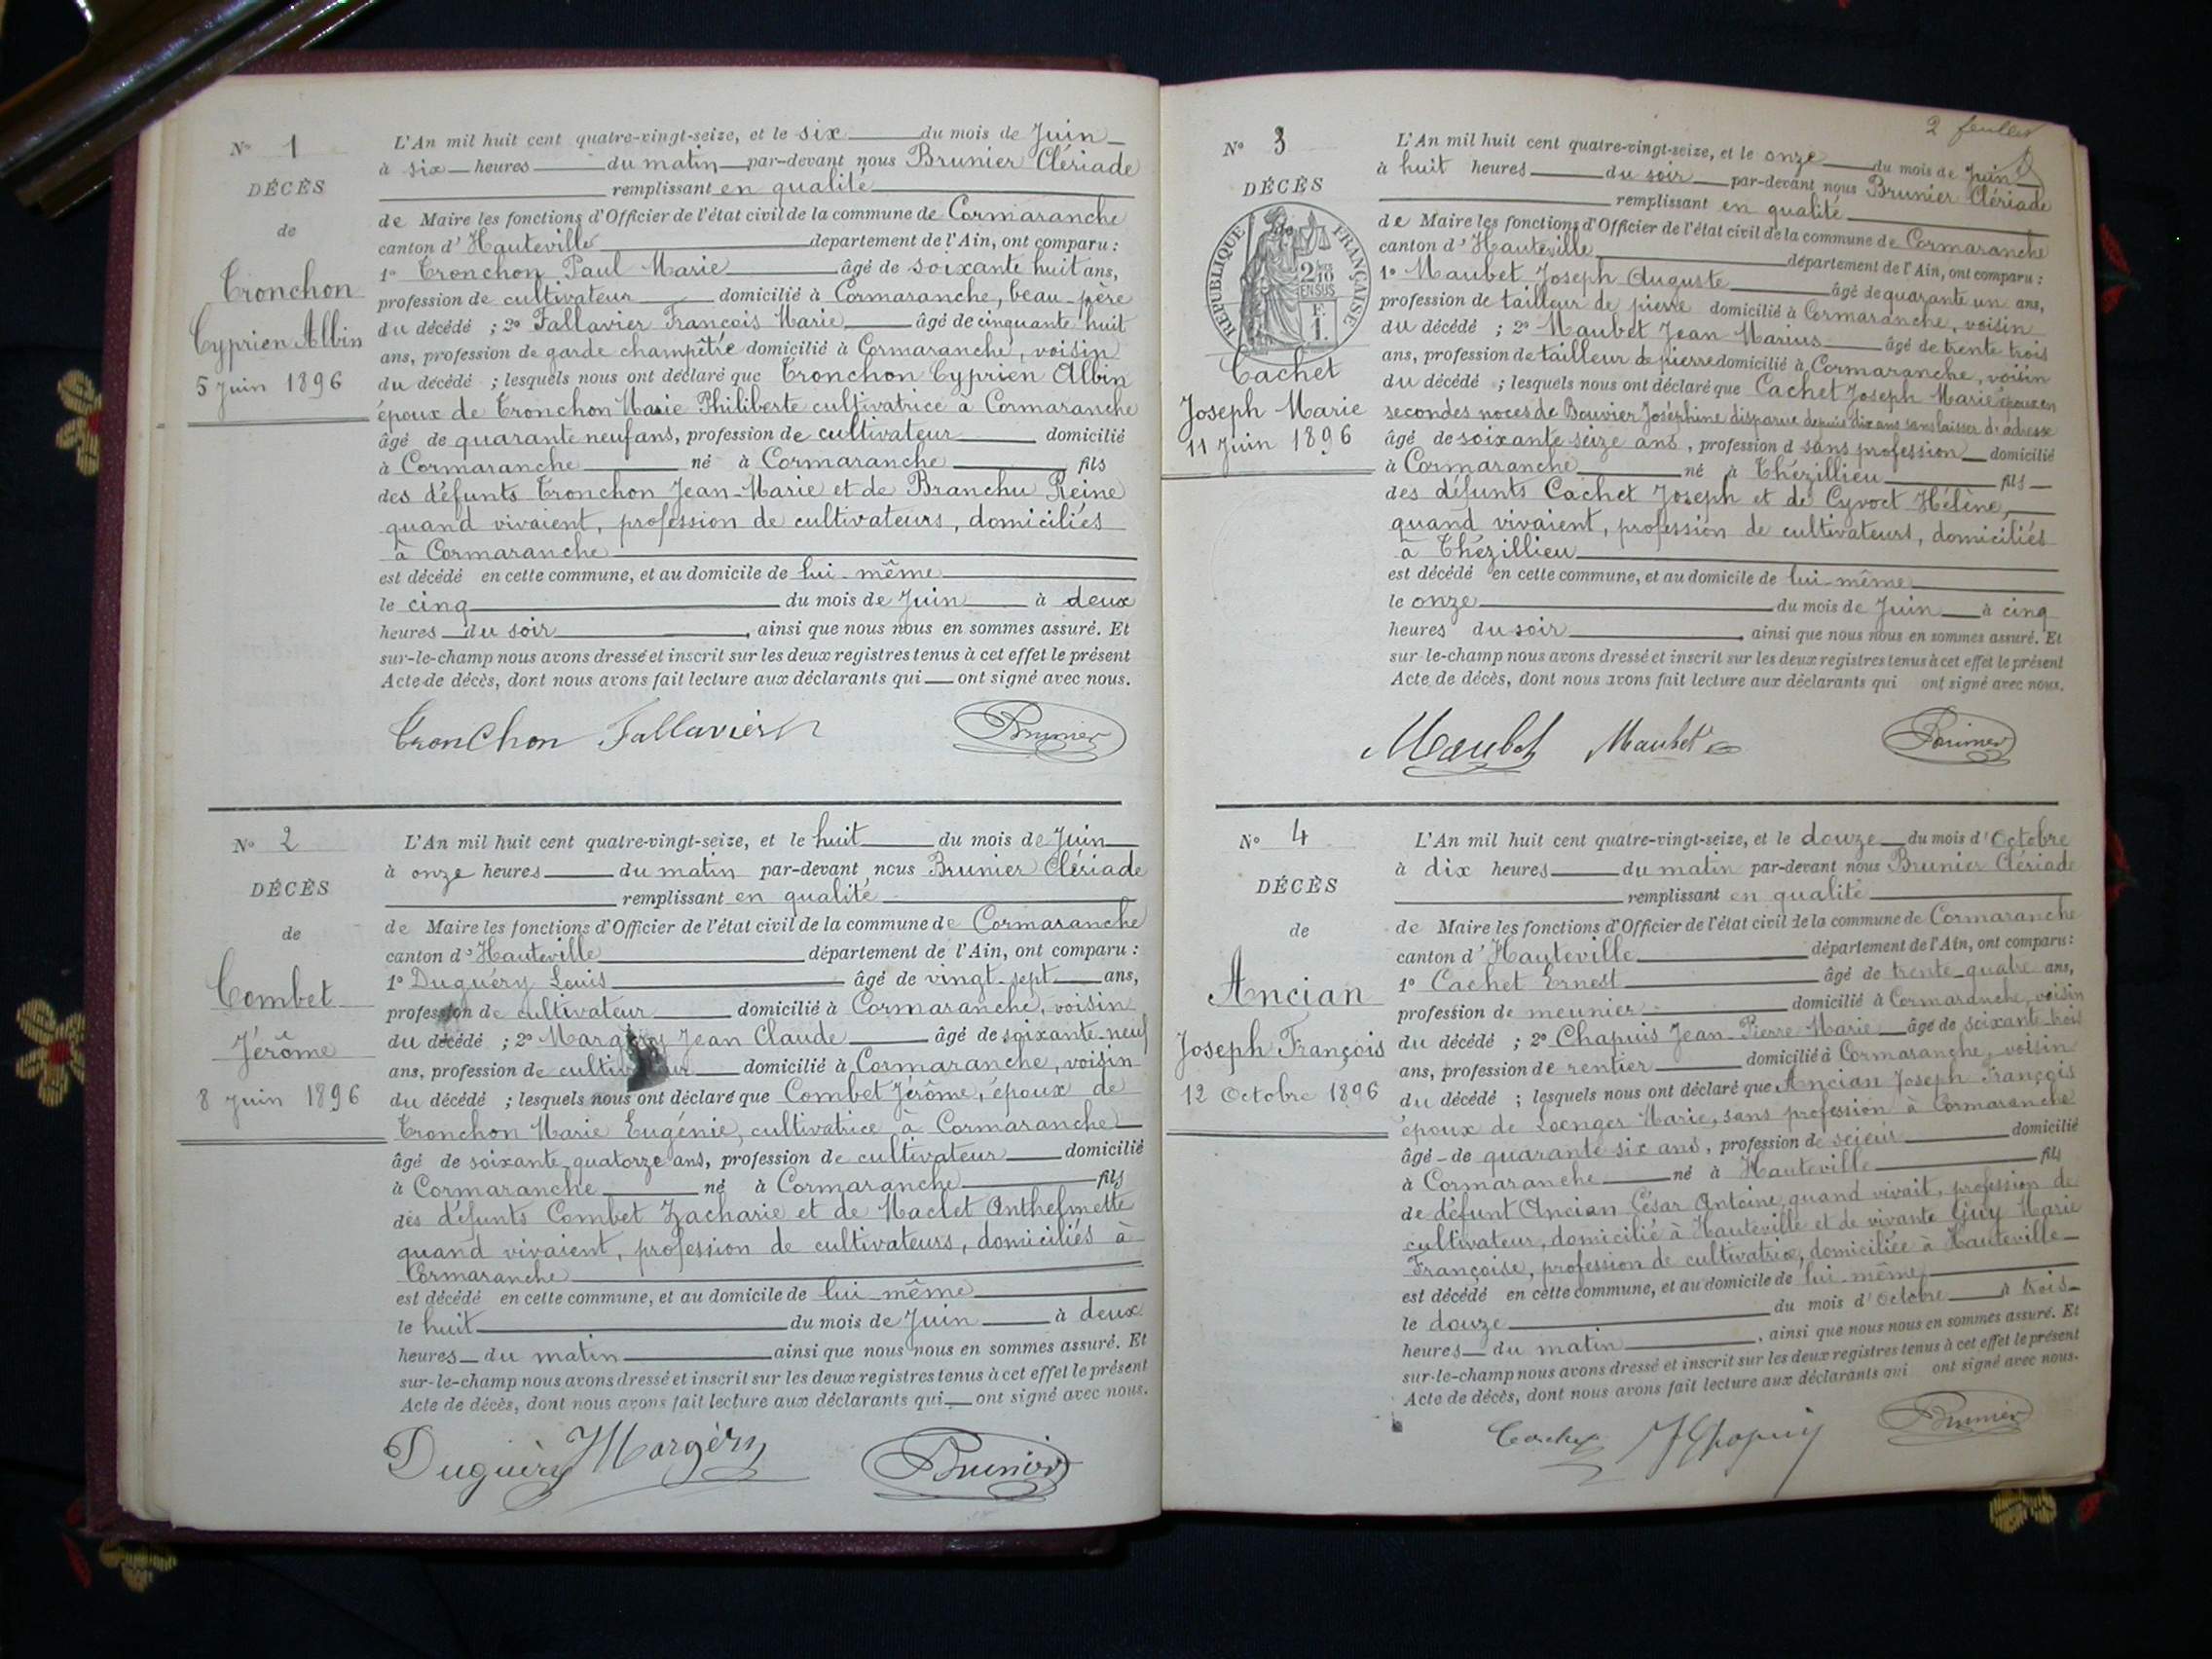 N° 1
DÉCÈS
de
Tronchon
Cyprien Albin
5 Juin 1896
L'An mil huit cent quatre-vingt-seize, et le six du mois de Juin
à six heures du matin par-devant nous Brunier Clériade
remplissant en qualité
de Maire les fonctions d'Officier de l'état civil de la commune de Cormaranche
canton d'Hauteville département de l'Ain, ont comparu :
1° Tronchon Paul Marie âgé de soixante huit ans,
profession de cultivateur domicilié à Cormaranche, beau-père
du décédé ; 2° Fallavier François Marie âgé de cinquante huit
ans, profession de garde champêtre domicilié à Cormaranche, voisin
du décédé ; lesquels nous ont déclaré que Tronchon Cyprien Albin
époux de Tronchon Marie Philiberte cultivatrice à Cormaranche
âgé de quarante neuf ans, profession de cultivateur domicilié
à Cormaranche né à Cormaranche fils
des défunts Tronchon Jean-Marie et de Branchu Reine
quand vivaient, profession de cultivateurs, domiciliés
à Cormaranche
est décédé en cette commune, et au domicile de lui-même
le cinq du mois de Juin à deux
heures du soir, ainsi que nous nous en sommes assuré. Et
sur-le-champ nous avons dressé et inscrit sur les deux registres tenus à cet effet le présent
Acte de décès, dont nous avons fait lecture aux déclarants qui ont signé avec nous.
Tronchon Fallavier Brunier
N° 2
DÉCÈS
de
Combet
Jérôme
8 Juin 1896
L'An mil huit cent quatre-vingt-seize, et le huit du mois de Juin
à onze heures du matin par-devant nous Brunier Clériade
remplissant en qualité
de Maire les fonctions d'Officier de l'état civil de la commune de Cormaranche
canton d'Hauteville département de l'Ain, ont comparu :
1° Duguéry Louis âgé de vingt-sept ans,
profession de cultivateur domicilié à Cormaranche, voisin
du décédé ; 2° Margéry Jean Claude âgé de soixante-neuf
ans, profession de cultivateur domicilié à Cormaranche, voisin
du décédé ; lesquels nous ont déclaré que Combet Jérôme, époux de
Tronchon Marie Eugénie, cultivatrice à Cormaranche
âgé de soixante-quatorze ans, profession de cultivateur domicilié
à Cormaranche né à Cormaranche fils
des défunts Combet Zacharie et de Maclet Anthelmette
quand vivaient, profession de cultivateurs, domiciliés à
Cormaranche
est décédé en cette commune, et au domicile de lui-même
le huit du mois de Juin à deux
heures du matin ainsi que nous nous en sommes assuré. Et
sur-le-champ nous avons dressé et inscrit sur les deux registres tenus à cet effet le présent
Acte de décès, dont nous avons fait lecture aux déclarants qui ont signé avec nous.
Duguèry Margéry Brunier
2 feuillet
N° 3
DÉCÈS
RÉPUBLIQUE FRANÇAISE
2/10 EN SUS
F. 1.
Cachet
Joseph Marie
11 Juin 1896
L'An mil huit cent quatre-vingt-seize, et le onze du mois de Juin
à huit heures du soir par-devant nous Brunier Clériade
remplissant en qualité
de Maire les fonctions d'Officier de l'état civil de la commune de Cormaranche
canton d'Hauteville département de l'Ain, ont comparu :
1° Maubet Joseph Auguste âgé de quarante un ans,
profession de tailleur de pierre domicilié à Cormaranche, voisin
du décédé ; 2° Maubet Jean Marius âgé de trente trois
ans, profession de tailleur de pierre domicilié à Cormaranche, voisin
du décédé ; lesquels nous ont déclaré que Cachet Joseph Marie époux en
secondes noces de Bouvier Joséphine disparue depuis dix ans sans laisser d'adresse
âgé de soixante seize ans, profession d sans profession domicilié
à Cormaranche né à Thézillieu fils
des défunts Cachet Joseph et de Cyvoct Hélène,
quand vivaient, profession de cultivateurs, domiciliés
à Thézillieu
est décédé en cette commune, et au domicile de lui-même
le onze du mois de Juin à cinq
heures du soir, ainsi que nous nous en sommes assuré. Et
sur-le-champ nous avons dressé et inscrit sur les deux registres tenus à cet effet le présent
Acte de décès, dont nous avons fait lecture aux déclarants qui ont signé avec nous.
Maubet Maubet Brunier
N° 4
DÉCÈS
de
Ancian
Joseph François
12 Octobre 1896
L'An mil huit cent quatre-vingt-seize, et le douze du mois d'Octobre
à dix heures du matin par-devant nous Brunier Clériade
remplissant en qualité
de Maire les fonctions d'Officier de l'état civil de la commune de Cormaranche
canton d'Hauteville département de l'Ain, ont comparu :
1° Cachet Ernest âgé de trente-quatre ans,
profession de meunier domicilié à Cormaranche, voisin
du décédé ; 2° Chapuis Jean-Pierre-Marie âgé de soixante trois
ans, profession de rentier domicilié à Cormaranche, voisin
du décédé ; lesquels nous ont déclaré que Ancian Joseph François
époux de Loenger Marie, sans profession à Cormaranche
âgé de quarante six ans, profession de scieur domicilié
à Cormaranche né à Hauteville fils
de défunt Ancian César Antoine quand vivait, profession de
cultivateur, domicilié à Hauteville et de vivante Guy Marie
Françoise, profession de cultivatrice, domiciliée à Hauteville
est décédé en cette commune, et au domicile de lui-même
le douze du mois d'Octobre à trois
heures du matin, ainsi que nous nous en sommes assuré. Et
sur-le-champ nous avons dressé et inscrit sur les deux registres tenus à cet effet le présent
Acte de décès, dont nous avons fait lecture aux déclarants qui ont signé avec nous.
Cachet Chapuis Brunier